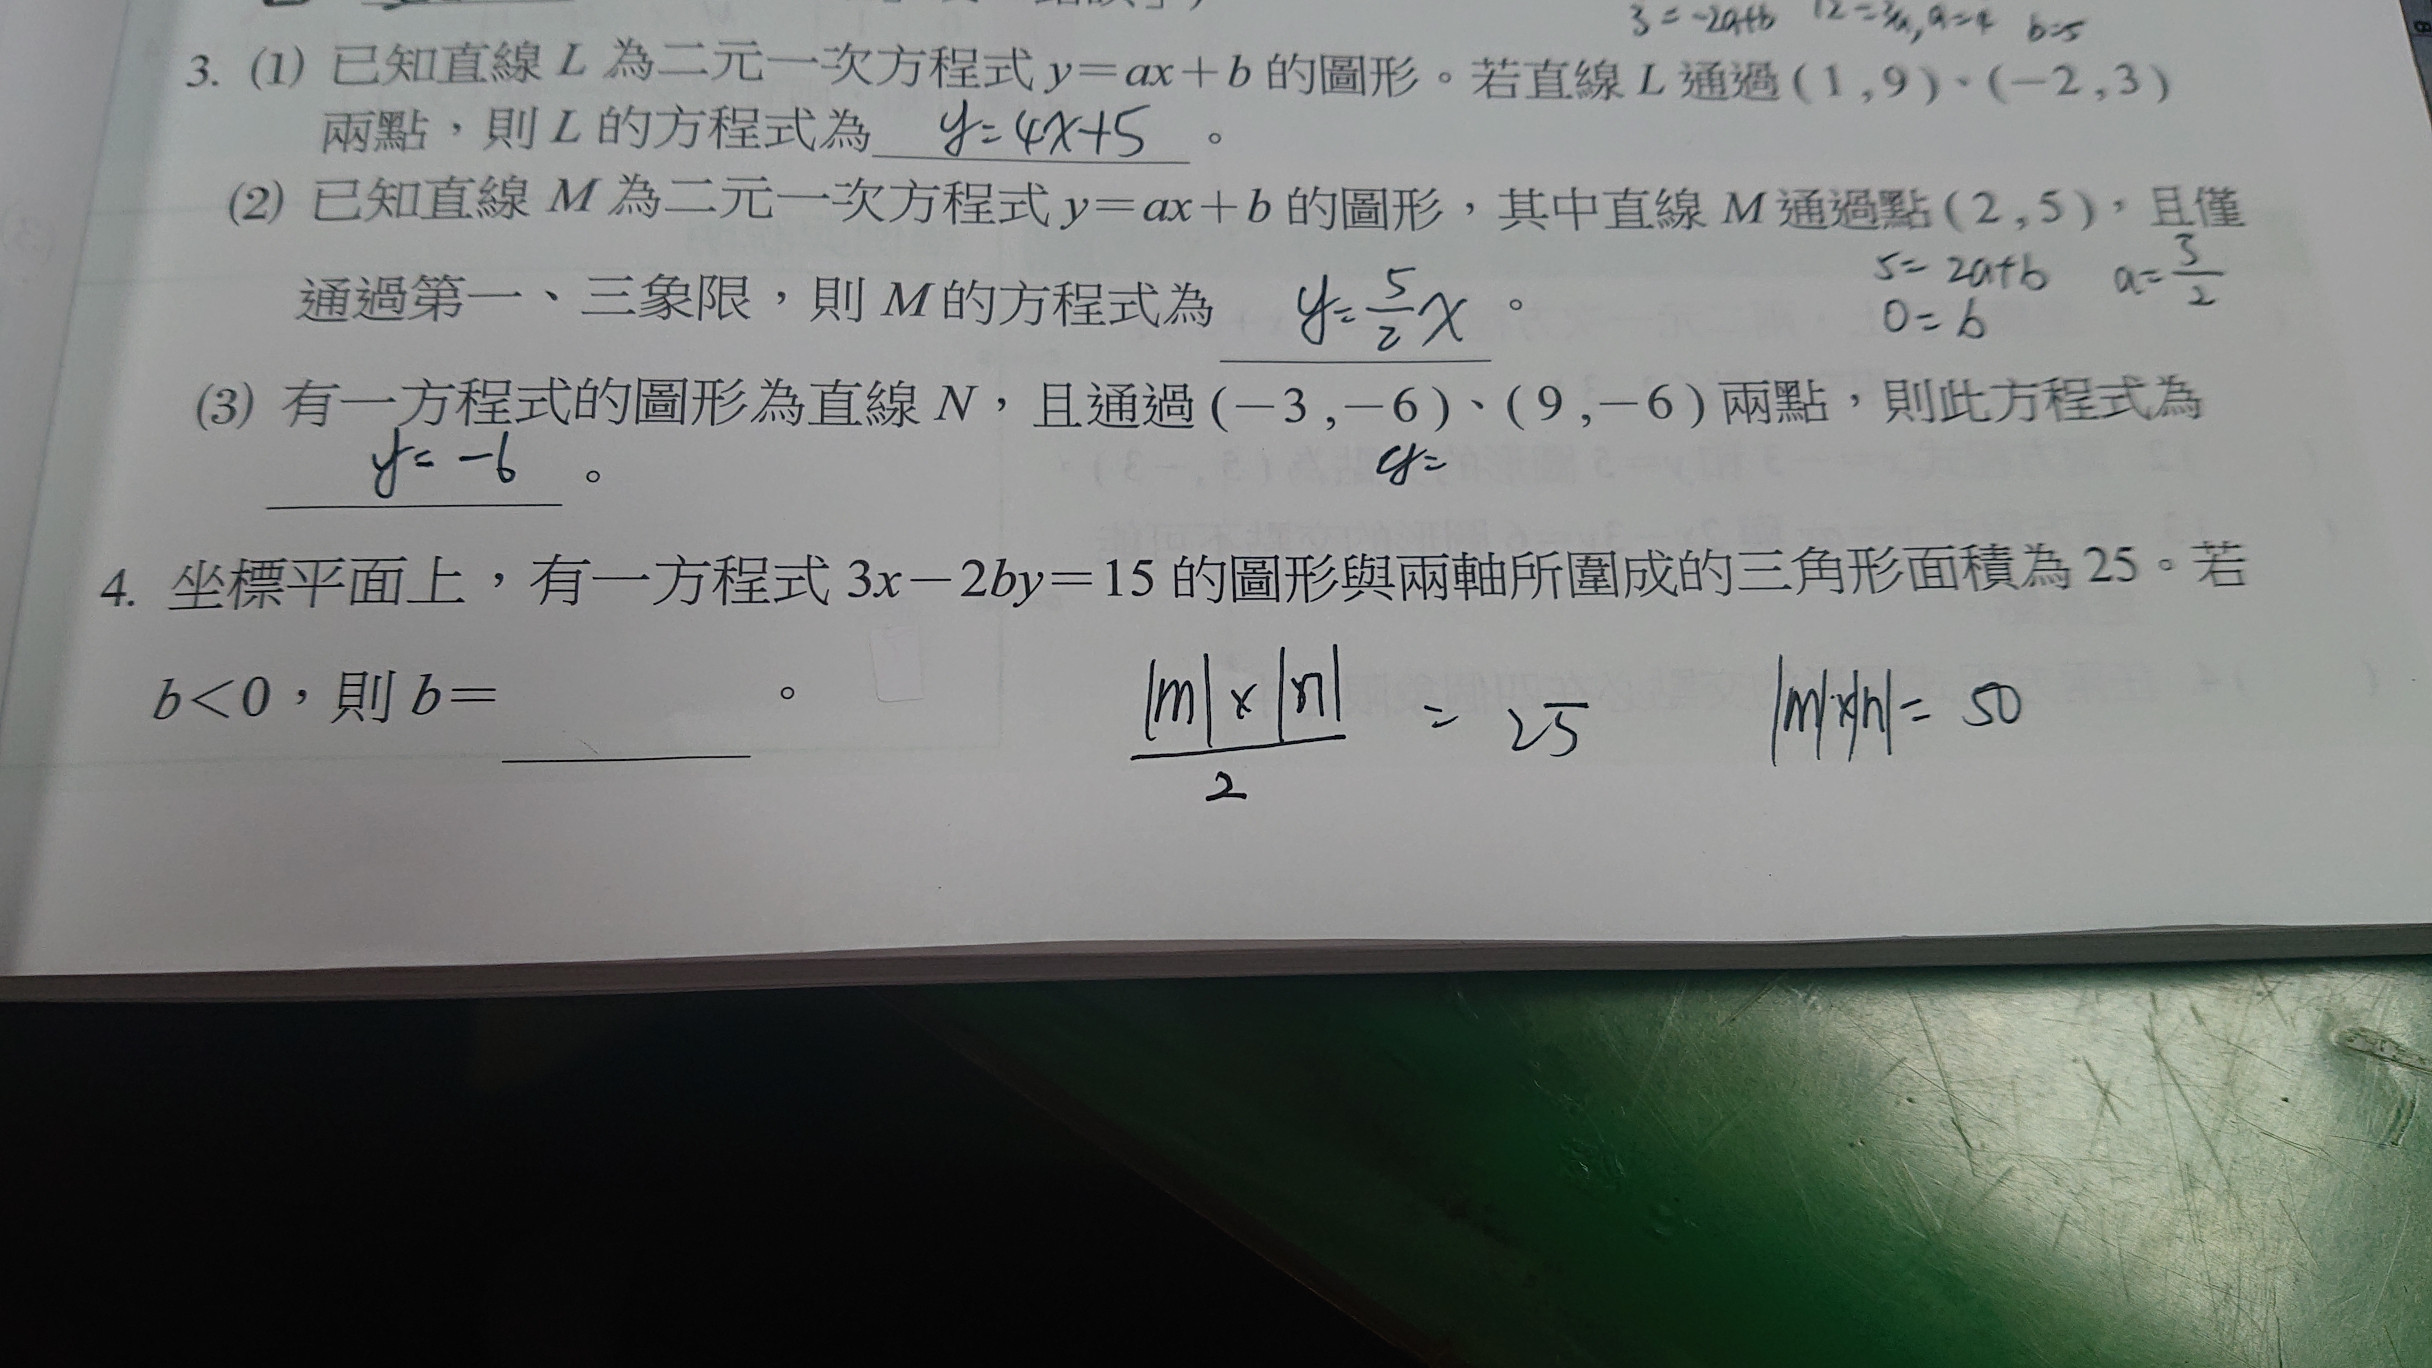 3 = -2a+b
b=5
3. (1) 已知直線 L 為二元一次方程式 y=ax+b 的圖形。若直線 L 通過(1,9)、(-2,3)
兩點，則 L 的方程式為 y=4x+5 。
(2) 已知直線 M 為二元一次方程式 y=ax+b 的圖形，其中直線 M 通過點(2,5)，且僅
5=2a+b a=5/2
0=b
通過第一、三象限，則 M 的方程式為 y=5/2 x 。
(3) 有一方程式的圖形為直線 N，且通過(-3,-6)、(9,-6)兩點，則此方程式為
y=-6 。 y=
4. 坐標平面上，有一方程式 3x-2by=15 的圖形與兩軸所圍成的三角形面積為 25。若
b<0，則 b= 。
|m|×|n|/2 = 25 |m|×|n|= 50